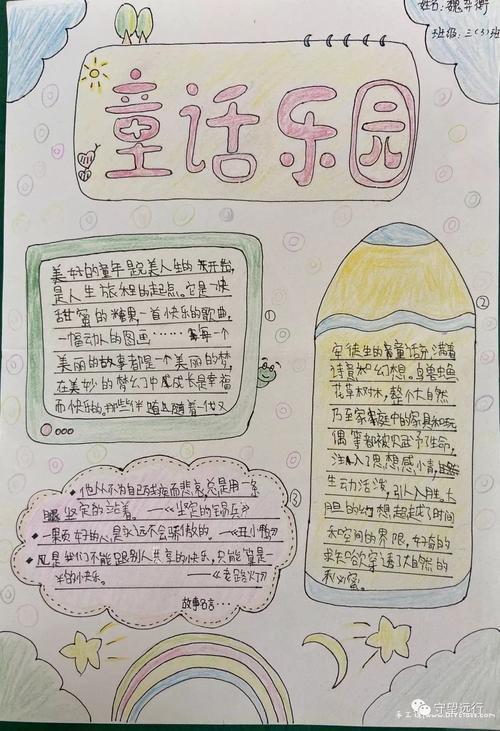 姓名:魏弈衡
班级:三(3)班
童话乐园
美好的童年是完美人生的开始,
是人生旅程的起点。它是一块
甜蜜的糖果,一首快乐的歌曲,
一幅动人的图画……每一个
美丽的故事都是一个美丽的梦,
在美妙的梦幻中成长是幸福
而快乐的。那些伴随着一代又
①
②
安徒生的童话充满着
诗意和幻想。鸟兽虫鱼
花草树木,整个大自然
乃至家庭中的家具和玩
偶等都被赋予了生命,
注入了思想感情,
生动活泼,引人入胜。大
胆的幻想超越了时间
和空间的界限,好奇的
求知欲穿透了大自然的
③
·他从不为自己残疾而悲哀,总是用一条
腿坚定的站着。——《坚定的锡兵》
·一颗好的心是永远不会骄傲的。——《丑小鸭》
·凡是我们不能跟别人共享的快乐,只能算是一
半的快乐。——《老路灯》
故事名言…
守望远行